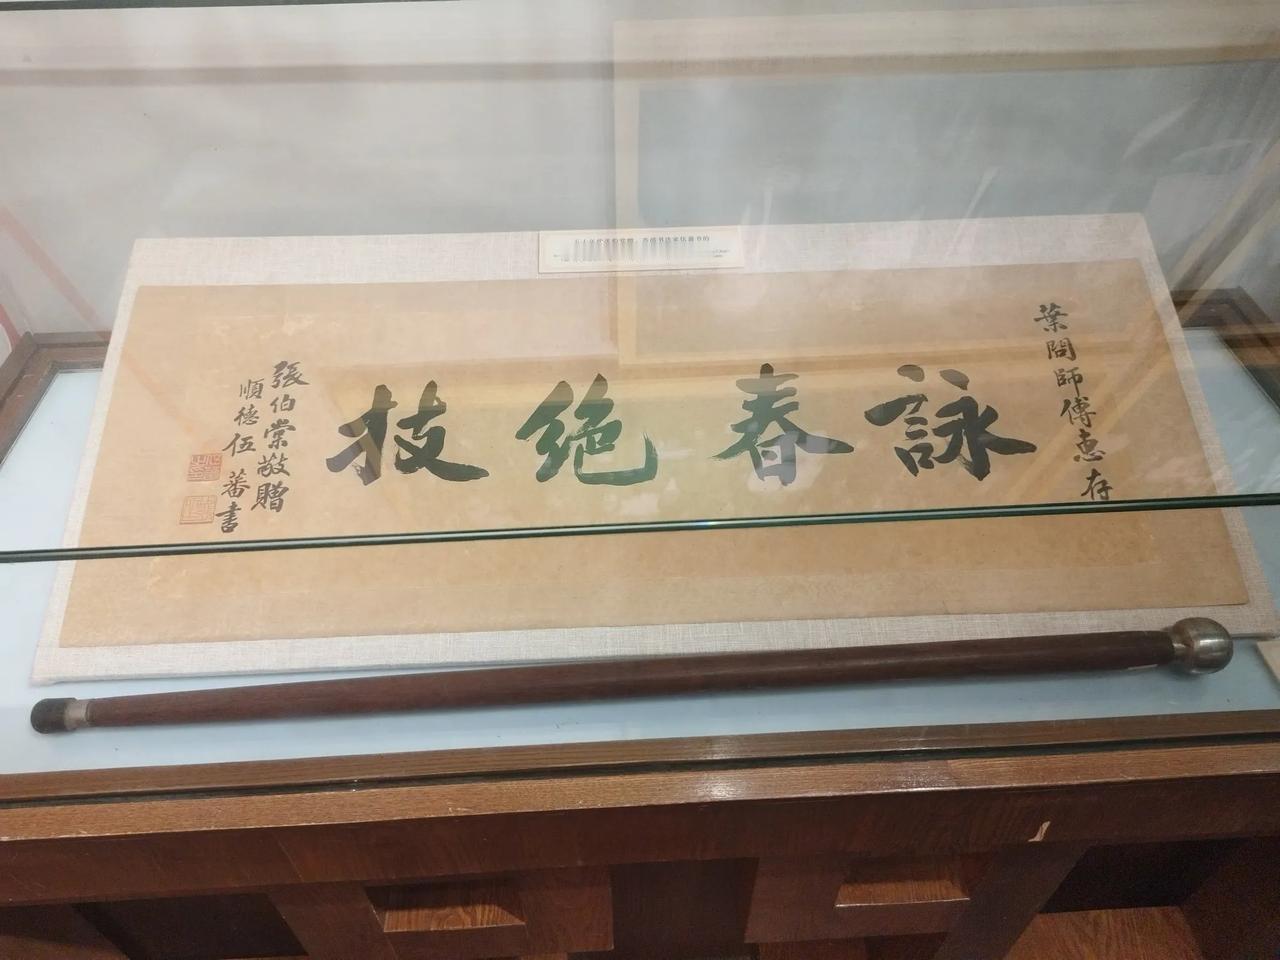 葉問師傅惠存
詠春絕技
張伯棠敬贈
順德伍蕃書